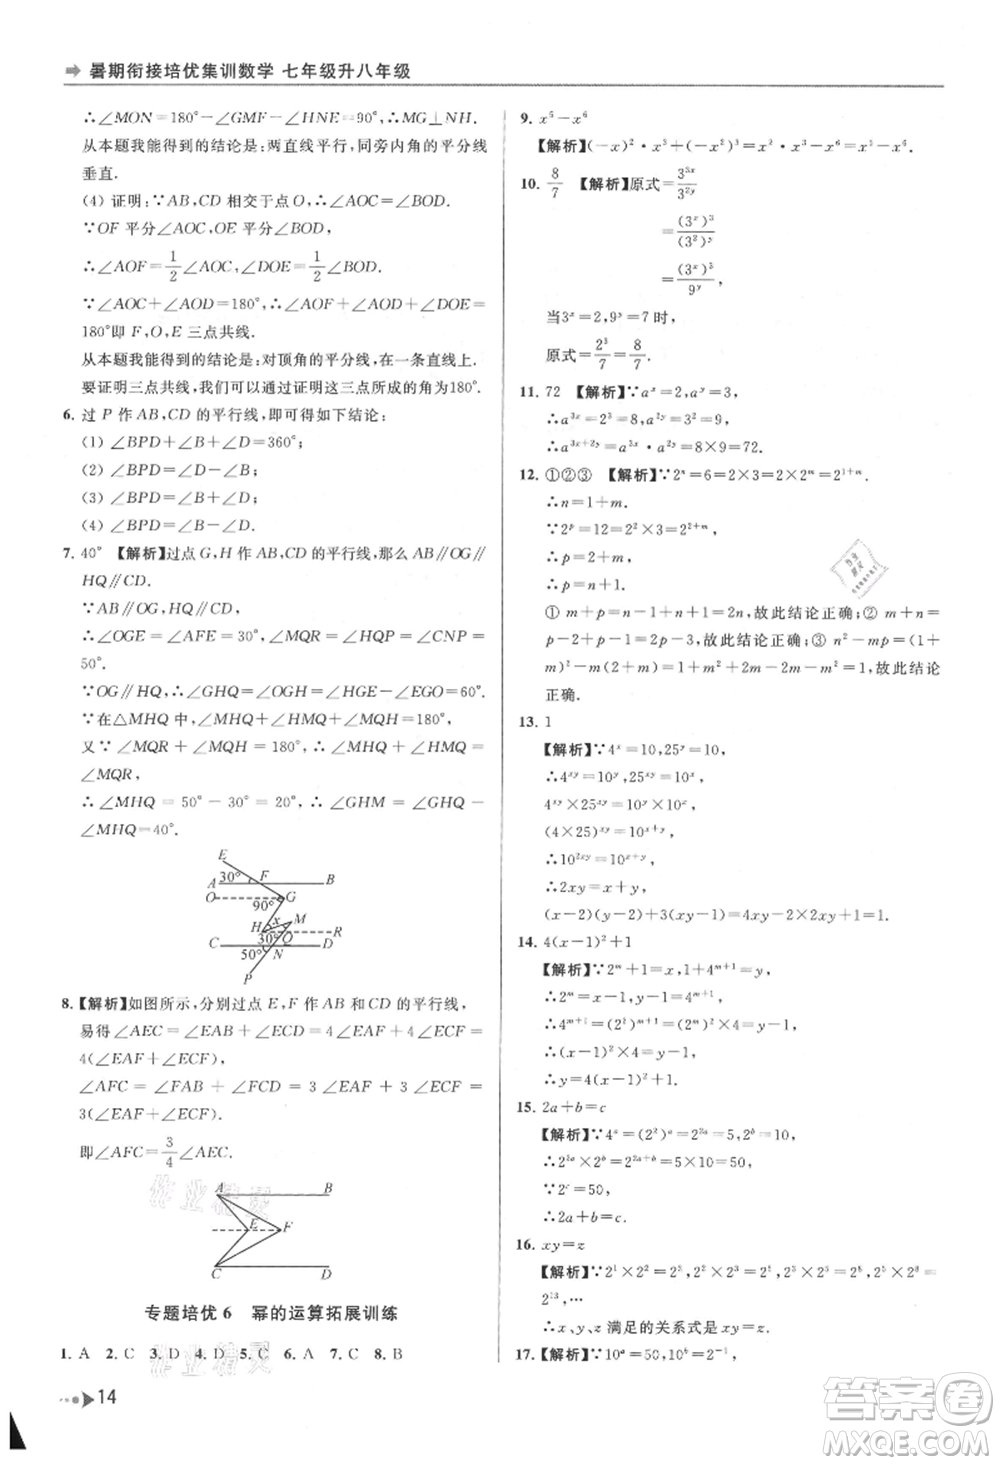 暑期衔接培优集训数学 七年级升八年级
∴∠MON=180°－∠GMF－∠HNE=90°,∴MG⊥NH.
从本题我能得到的结论是:两直线平行,同旁内角的平分线
垂直.
(4) 证明:∵AB,CD 相交于点 O,∴∠AOC=∠BOD.
∵OF 平分∠AOC,OE 平分∠BOD,
∴∠AOF=1/2∠AOC=1/2∠BOD=∠DOE.
∵∠AOC+∠AOD=180°,∴∠AOF+∠AOD+∠DOE=
180°即 F,O,E 三点共线.
从本题我能得到的结论是:对顶角的平分线,在一条直线上.
要证明三点共线,我们可以通过证明这三点所成的角为180°.
6. 过 P 作 AB,CD 的平行线,即可得如下结论:
(1) ∠BPD+∠B+∠D=360°;
(2) ∠BPD=∠B+∠D;
(3) ∠BPD+∠B=∠D;
(4) ∠BPD+∠D=∠B.
7. 40° 【解析】过点 G,H 作 AB,CD 的平行线,那么 AB∥OG∥
HQ∥CD.
∵AB∥OG,HQ∥CD,
∴∠OGE=∠AFE=30°,∠MQR=∠HQP=∠CNP=
50°.
∵OG∥HQ,∴∠GHQ=∠OGH=∠HGE－∠EGO=60°.
∵在△MHQ 中,∠MHQ+∠HMQ+∠MQH=180°,
又∵∠MQR+∠MQH=180°,∴∠MHQ+∠HMQ=
∠MQR,
∴∠MHQ=50°－30°=20°,∴∠GHM=∠GHQ－
∠MHQ=40°.
E
A 30° F B
O G
90°
H x M
30° Q R
C D
50° N
P
8. 【解析】如图所示,分别过点 E,F 作 AB 和 CD 的平行线,
易得∠AEC=∠BAE+∠ECD=4∠EAF+4∠ECF=
4(∠EAF+∠ECF).
∠AFC=∠FAB+∠FCD=3∠EAF+3∠ECF=
3(∠EAF+∠ECF).
即∠AFC=3/4∠AEC.
A B
E F
C D
专题培优 6 幂的运算拓展训练
1. A 2. C 3. D 4. D 5. C 6. A 7. C 8. B
14
9. x⁵－x⁶
【解析】(－x)²·x³+(－x²)³=x²·x³－x⁶=x⁵－x⁶.
10. 8/7 【解析】原式=3³ˣ/3²ʸ
=(3ˣ)³/(3²)ʸ
=(3ˣ)³/9ʸ,
当3ˣ=2,9ʸ=7时,
原式=2³/7=8/7.
11. 72 【解析】∵aˣ=2,aʸ=3,
∴a³ˣ=2³=8,a²ʸ=3²=9,
∴a³ˣ⁺²ʸ=a³ˣ·a²ʸ=8×9=72.
12. ①②③ 【解析】∵2ⁿ=6=2×3=2×2ᵐ=2¹⁺ᵐ,
∴n=1+m.
∵2ᵖ=12=2²×3=2²⁺ᵐ,
∴p=2+m,
∴p=n+1.
①m+p=n－1+n+1=2n,故此结论正确;②m+n=
p－2+p－1=2p－3,故此结论正确;③n²－mp=(1+
m)²－m(2+m)=1+m²+2m－2m－m²=1,故此结论
正确.
13. 1
【解析】∵4ˣ=10,25ʸ=10,
∴4ˣʸ=10ʸ,25ˣʸ=10ˣ,
4ˣʸ×25ˣʸ=10ʸ×10ˣ,
(4×25)ˣʸ=10ˣ⁺ʸ,
∴10²ˣʸ=10ˣ⁺ʸ,
∴2xy=x+y,
(x－2)(y－2)+3(xy－1)=4xy－2(x+y)+1=1.
14. 4(x－1)²+1
【解析】∵2ᵐ=x－1,1+4ᵐ⁺¹=y,
∴2ᵐ=x－1,4ᵐ⁺¹=y－1.
∵4ᵐ⁺¹=(2²)ᵐ⁺¹=(2ᵐ)²×2²,
∴(x－1)²×4=y－1,
∴y=4(x－1)²+1.
15. 2a+b=c
【解析】∵4ᵃ=(2²)ᵃ=2²ᵃ=5,2ᵇ=10,
∴2²ᵃ×2ᵇ=2²ᵃ⁺ᵇ=5×10=50.
∵2ᶜ=50,
∴2a+b=c.
16. xy=z
【解析】∵2¹×2²=2³,2²×2³=2⁵,2³×2⁵=2⁸,2⁵×2⁸=
2¹³,…
∴x、y、z 满足的关系式是xy=z.
17. 【解析】∵10ᵃ=50,10ᵝ=2⁻¹,
答案圈
MXQE.COM
作业精灵